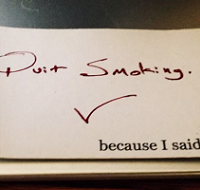 Quit Smoking.
✓
because I said